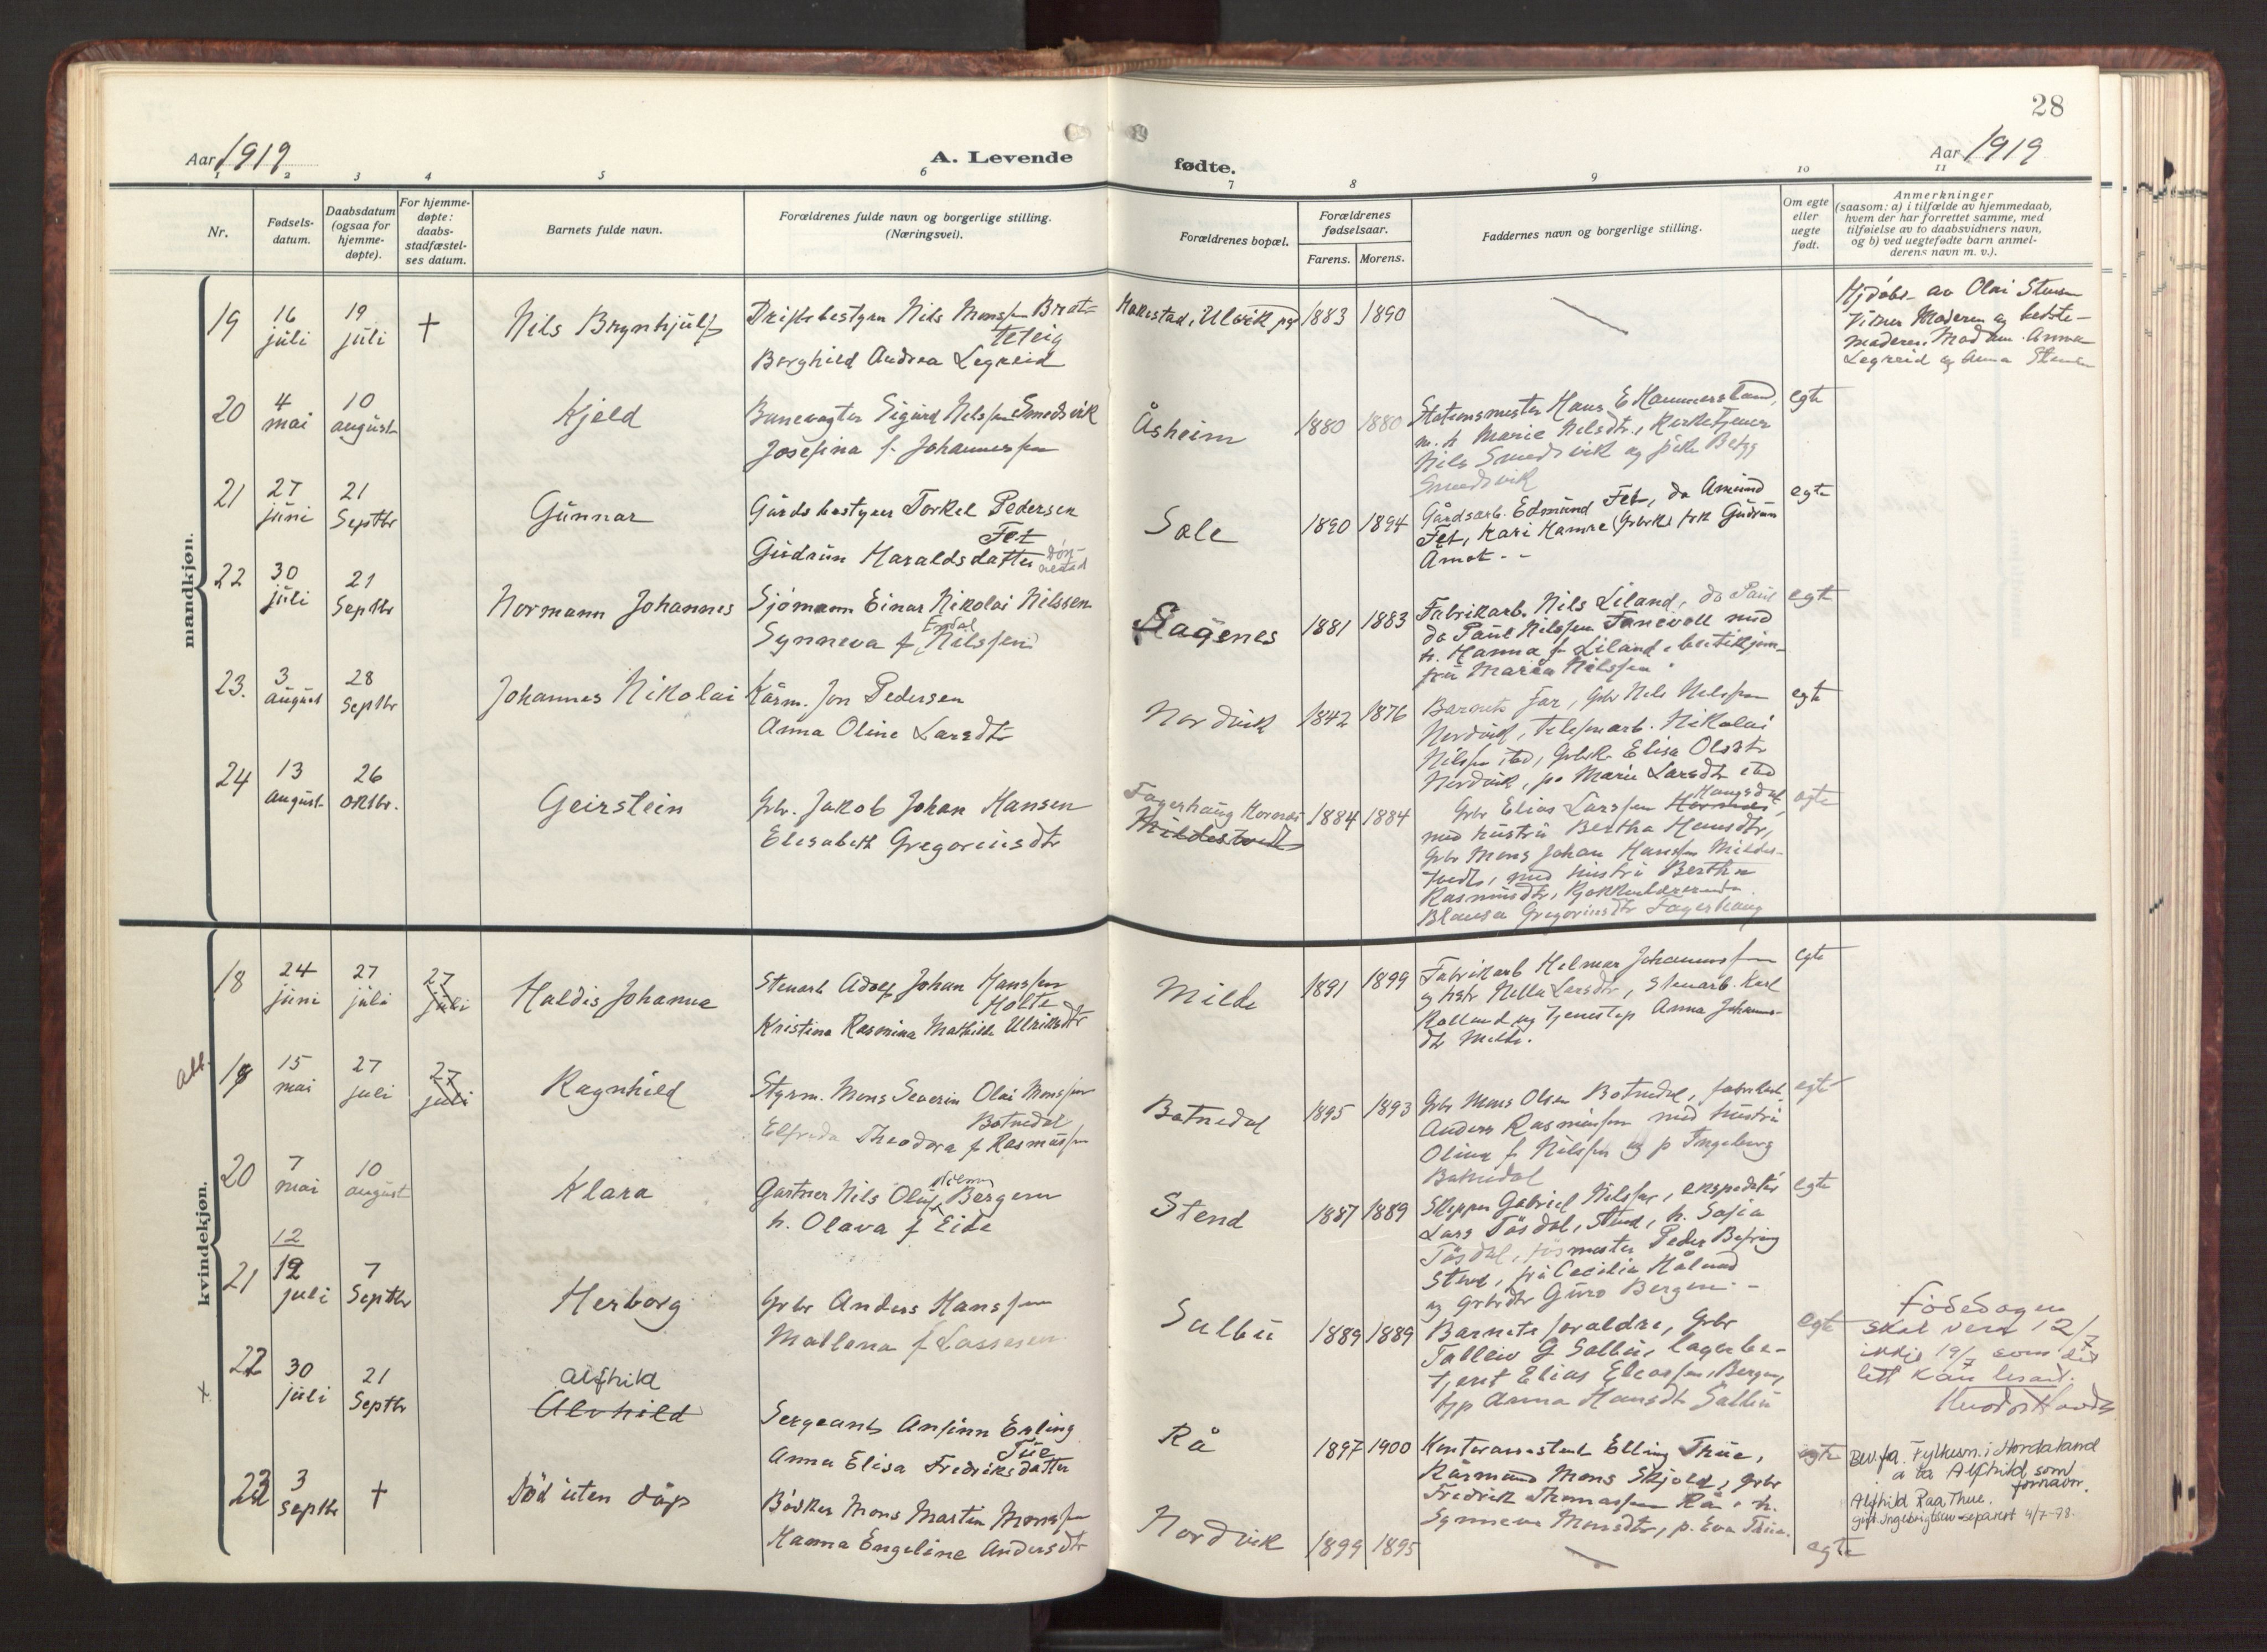 28
Aar 1919
A. Levende
fødte.
Aar 1919
1 2 3 4 5 6 7 8 9 10 11
Nr.
Fødsels-
datum.
Daabsdatum
(ogsaa for
hjemme-
døpte).
For hjemme-
døpte:
daabs-
stadfæstel-
ses datum.
Barnets fulde navn.
Forældrenes fulde navn og borgerlige stilling.
(Næringsvei).
Forældrenes bopæl.
Forældrenes
fødselsaar.
Farens. Morens.
Faddernes navn og borgerlige stilling.
Om egte
eller
uegte
født.
Anmerkninger
(saasom: a) i tilfælde av hjemmedaab,
hvem der har forrettet samme, med
tilføielse av to daabsvidners navn,
og b) ved uegtefødte barn anmel-
derens navn m. v.).
mandkjøn.
19
16
juli
19
juli
†
Nils Brynhjulf
Driftsbestyrer Nils Monssen Brat-
teteig
Borghild Andrea Legreid
Ulvik
1883 1890
Hjdøbt av Olai Stensen
Vitner Moderen og bedste-
moderen. Madam Anna
Legreid og Anna Stensen
20
4
mai
10
august
Kjeld
Banevogter Sigurd Nilssen Smedsvik
Josefina f. Johannessen
Åsheim
1880 1880
Stationsmester Hans E Hammersland,
m. h Marie Nilsdtr., Kirketjener
Nils Smedsvik og pike
Smedsvik
egte
21
27
juni
21
Septbr
Gunnar
Gårdsbestyrer Torkel Pedersen
Fet
Gudrun Haraldsdatter
Sole
1890 1894
Gårdsarb. Edmund Fet, do Amund
Fet, Kari Hamre (Grbrk) frk Gudrun
Amot
egte
22
30
juli
21
Septbr
Normann Johannes
Sjømann Einar Nikolai Nilssen
Synneva f. Nilssen
Hagenes
1881 1883
Fabrikarb. Nils Liland, do Paul
do Paul Nilssen Fanevoll med
h. Hanna f Liland,
Maria Nilssen
egte
23.
3
august
28
Septbr
Johannes Nikolai
Kårm. Jon Pedersen
Anna Oline Larsdtr
Nordvik
1842 1876
Barnets far, Grbr Nils Nilssen
Nordvik, Telefonarb. Nikolai
Nilssen ibd, Grbrk. Elisa Olsdtr
Nordvik, p. Marie Larsdtr ibd
egte
24
13
august
26
oktbr.
Geirstein
Grbr. Jakob Johan Hansen
Elisabeth Gregoriusdtr
Fagerhaug Hornnes
Mildestveit
1884 1884
Haugsdal
Grbr Elias Larssen Hornnes,
med hustru Bertha Hansdtr,
Grbr Mons Johan Hanssen Mildes-
tvedt, med hustru Bertha
Rasmusdtr,
Gregoriusdtr Fagerhaug
egte
kvindekjøn.
18
24
juni
27
juli
27
juli
Haldis Johanne
Stenarb Adolf Johan Hanssen
Holte
Kristina Rasmina Mathilde Ulriksdtr
Milde
1891 1899
Fabrikarb Helmer Johannessen
og hstr Nella Larsdtr, Stenarb. Karl
Rolland og tjenestep Anna Johannes-
dtr Milde.
egte
Att.
19
15
mai
27
juli
27
juli
Ragnhild
Styrm. Mons Severin Olai Monssen
Botnedal
Elfrida Theodora f Rasmussen
Botnedal
1895 1893
Grbr Mons Olsen Botnedal, fabrikarb
Anders Rasmussen med hustru
Olina f Nilssen og p Ingeborg
Botnedal
egte
20
7
mai
10
august
Klara
Gartner Nils Olai Bergum
h. Olava f Eide
Stend
1887 1889
Skipper Gabriel Nilssen, ekspeditør
Lars Tøsdal, Stend, h. Sofia
Tøsdal, Peder
Stend, fru Cecilia
og Grbrdtr Guro Bergum. -
egte
12
21
12
juli
7
Septbr
Herborg
Grbr Anders Hanssen
Mallena f Lassesen
Salbu
1889 1889
Barnets foraldre, Grbr
Talleiv G Salbu, lagerbe-
tjent Elias Eleassen, Bergen,
typ Anna Hansdtr Salbu
egte
Fødedagen
skal vera 12/7
ikkje 19/7 som det
lett kan lesast.
22
30
juli
21
Septbr
x
Alfhild
Alvhild
Sergeant Anfinn Erling
Tüe
Anna Elisa Fredriksdatter
Rå
1897 1900
Kontorassistent Elling Thüe,
Kårmand Mons Skjold, Grbr
Fredrik Thomassen Rå, h.
Synneva Monsdtr, p. Eva Thüe.
egte
Bev. fra Fylkesm. i Hordaland
a ta Alfhild som
fornavn.
Alfhild Raa Thue.
gift Ingebrigtsen - separert 4/7-78.
23
3
Septbr
†
Död uten dåp
Bødker Mons Martin Monssen
Hanna Engeline Andersdtr
Nordvik
1899 1895
egte